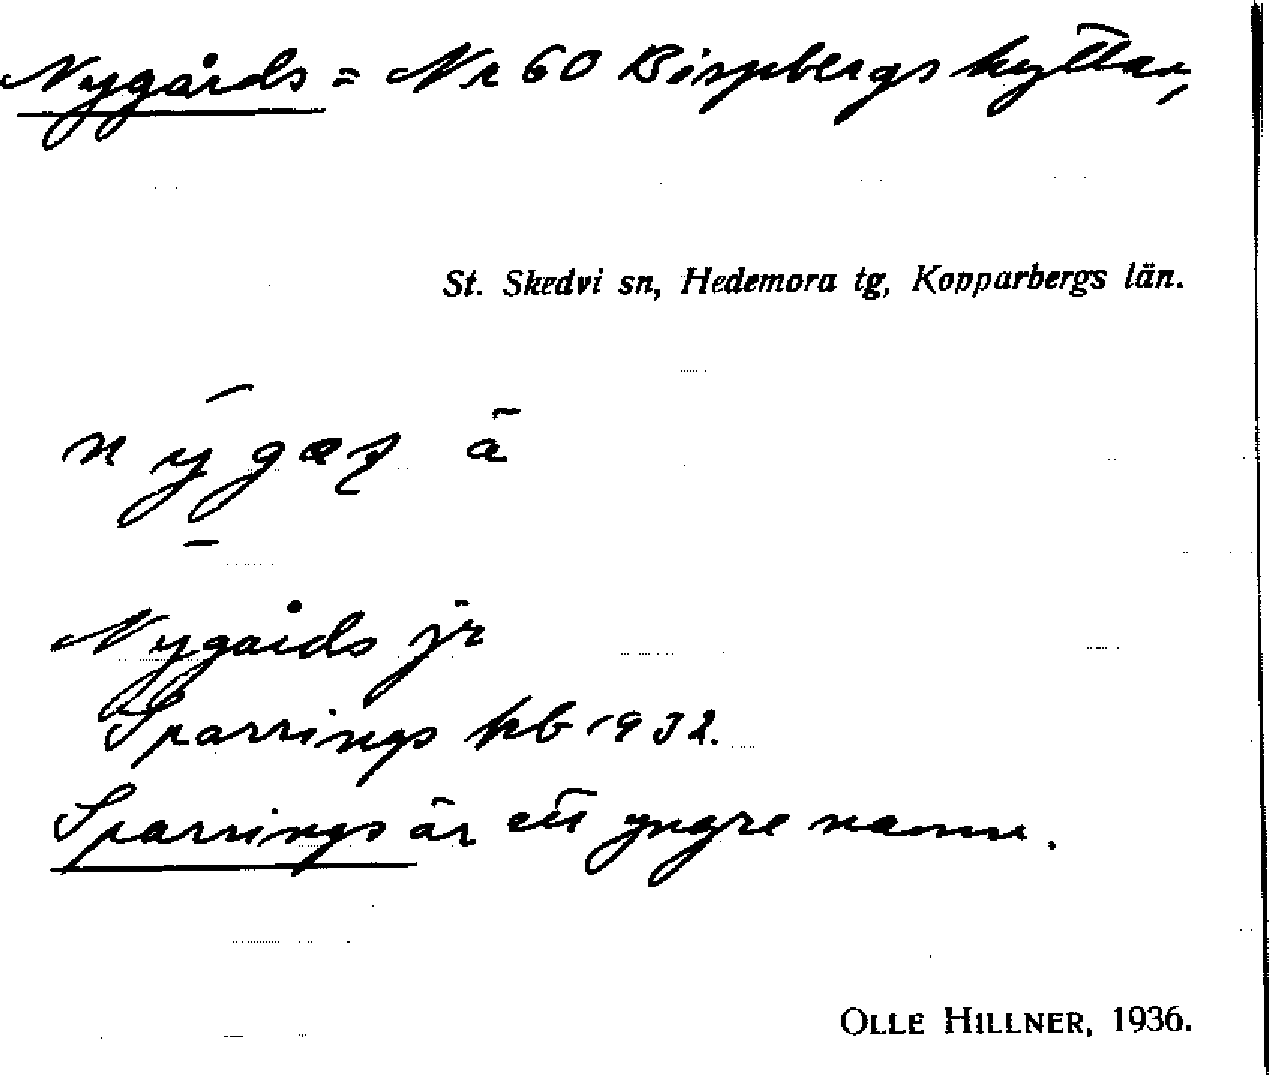 Nygårds = Nr 60 Bispbergshyttan,
St. Skedvi sn, Hedemora tg, Kopparbergs län.
ä
Nygårds jr
Sparrings kb 1932.
Sparrings är ett yngre namn.
OLLE HILLNER, 1936.